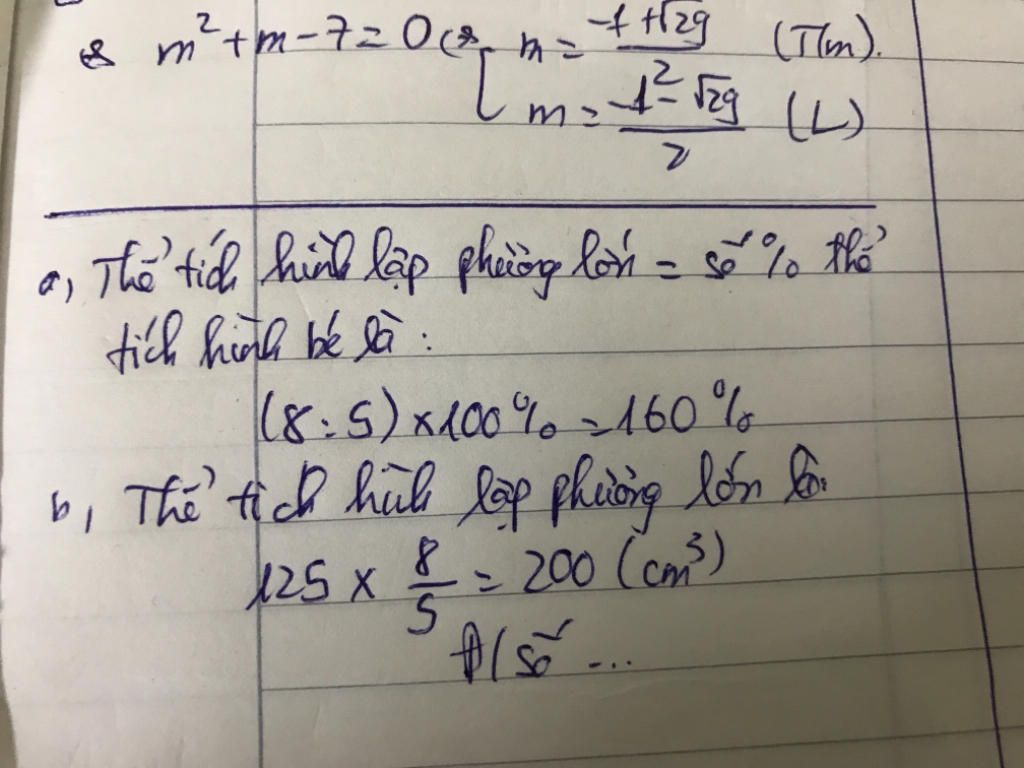 ⇔ m² + m - 7 = 0 ⇔ [ m = (-1 + √29)/2 (T/m).
m = (-1 - √29)/2 (L)
a, Thể tích hình lập phương lớn = số % thể
tích hình bé là :
(8 : 5) × 100% = 160%
b, Thể tích hình lập phương lớn là:
125 × 8/5 = 200 (cm³)
Đ/số ...